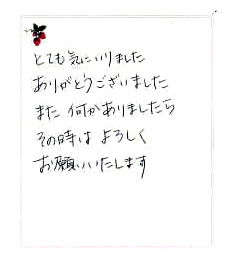 とても気にいりました
ありがとうございました
また 何かありましたら
その時は よろしく
お願いいたします